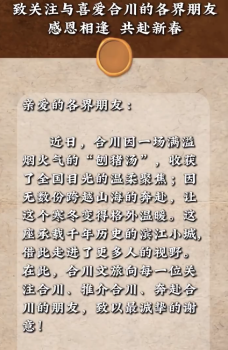 致关注与喜爱合川的各界朋友
感恩相逢 共赴新春
亲爱的各界朋友：
近日，合川因一场满溢
烟火气的“刨猪汤”，收获
了全国目光的温柔聚焦；因
无数份跨越山海的奔赴，让
这个寒冬变得格外温暖。这
座承载千年历史的滨江小城，
借此走进了更多人的视野。
在此，合川文旅向每一位关
注合川、推介合川、奔赴合
川的朋友，致以最诚挚的谢
意！